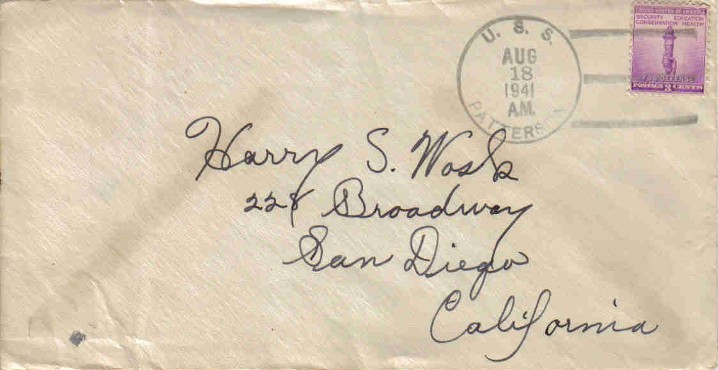 U. S. S.
AUG
18
1941
A.M.
PATTERSON
UNITED STATES OF AMERICA
SECURITY EDUCATION
CONSERVATION HEALTH
FOR DEFENSE
POSTAGE 3 CENTS
Harry S. Wosk
228 Broadway
San Diego
California